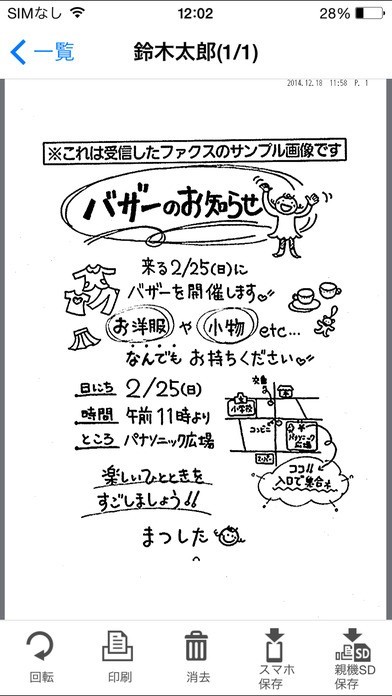 SIMなし 12:02 28%
一覧 鈴木太郎(1/1)
2014.12.18 11:58 P. 1
※これは受信したファクスのサンプル画像です
バザーのお知らせ
来る2/25(日)に
バザーを開催します
お洋服 や 小物 etc...
なんでも お持ちください
日にち 2/25(日)
時間 午前11時より
ところ パナソニック広場
交番
小学校
コンビニ
パナソニック広場
スーパー
ココ!!
入口で集合
楽しいひとときを
すごしましょう!!
まつした
回転 印刷 消去 スマホ保存 親機SD保存
SD